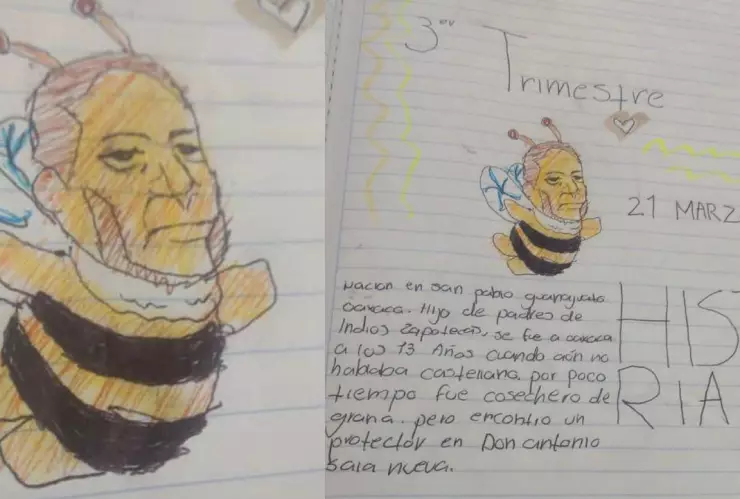 3er
Trimestre
21 MARZ
HIS
RIA
Nacion en san pablo guanajuato
oaxaca. Hijo de padres de
Indios zapotecos, se fue a oaxaca
a los 13 Años cuando aún no
hablaba castellano. por poco
tiempo fue cosechero de
grana. pero encontro un
protector en Don antonio
sala nueva.